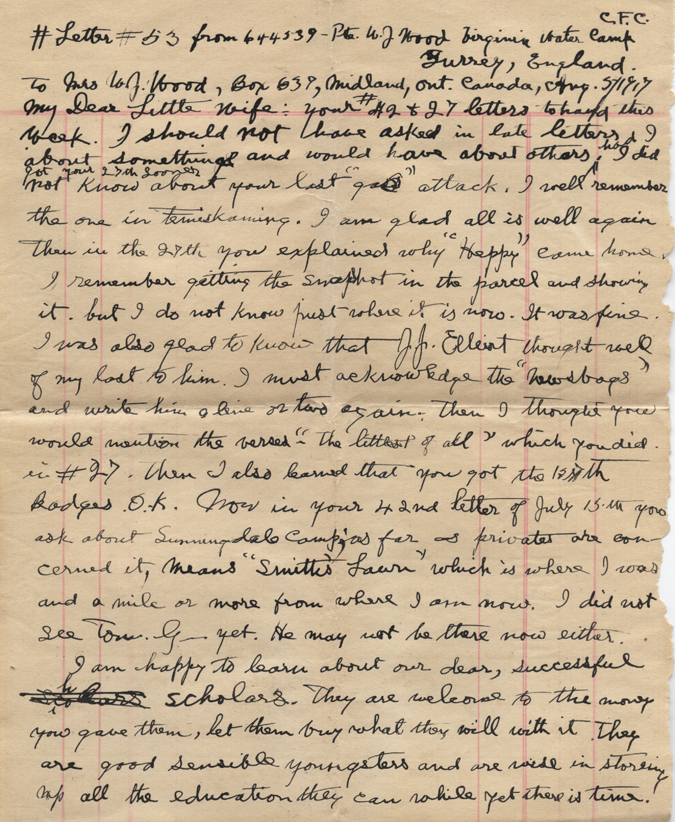 C.F.C.
# Letter # 53 from 644539 - Pte. W. J. Wood Virginia Water Camp
Surrey, England.
To Mrs W. J. Wood, Box 639, Midland, Ont. Canada, Aug. 5/1917
My Dear Little Wife: your # 42 & 27 letters to hand this
week. I should not have asked in late letters, I
about somethings and would have about others, had I did
got your 27th sooner
not know about your last "gas" attack. I well remember
the one in Temiskaming. I am glad all is well again
then in the 27th you explained why "Heppy" came home.
I remember getting the snapshot in the parcel and showing
it. but I do not know just where it is now. It was fine.
I was also glad to know that J.J. Elliott thought well
of my last to him. I must acknowledge the "newsbags"
and write him a line or two again. Then I thought you
would mention the verses "the littlest of all" which you did.
in # 27. Then I also learned that you got the 157th
Badges O.K. Now in your 42nd letter of July 15th you
ask about Sunningdale Camp, as far as privates are con-
cerned it, means "Smith's Lawn" which is where I was
and a mile or more from where I am now. I did not
see Tom. G— yet. He may not be there now either.
I am happy to learn about our dear, successful
scholars. They are welcome to the money
you gave them, let them buy what they will with it. They
are good sensible youngsters and are wise in storeing
up all the education they can while yet there is time.